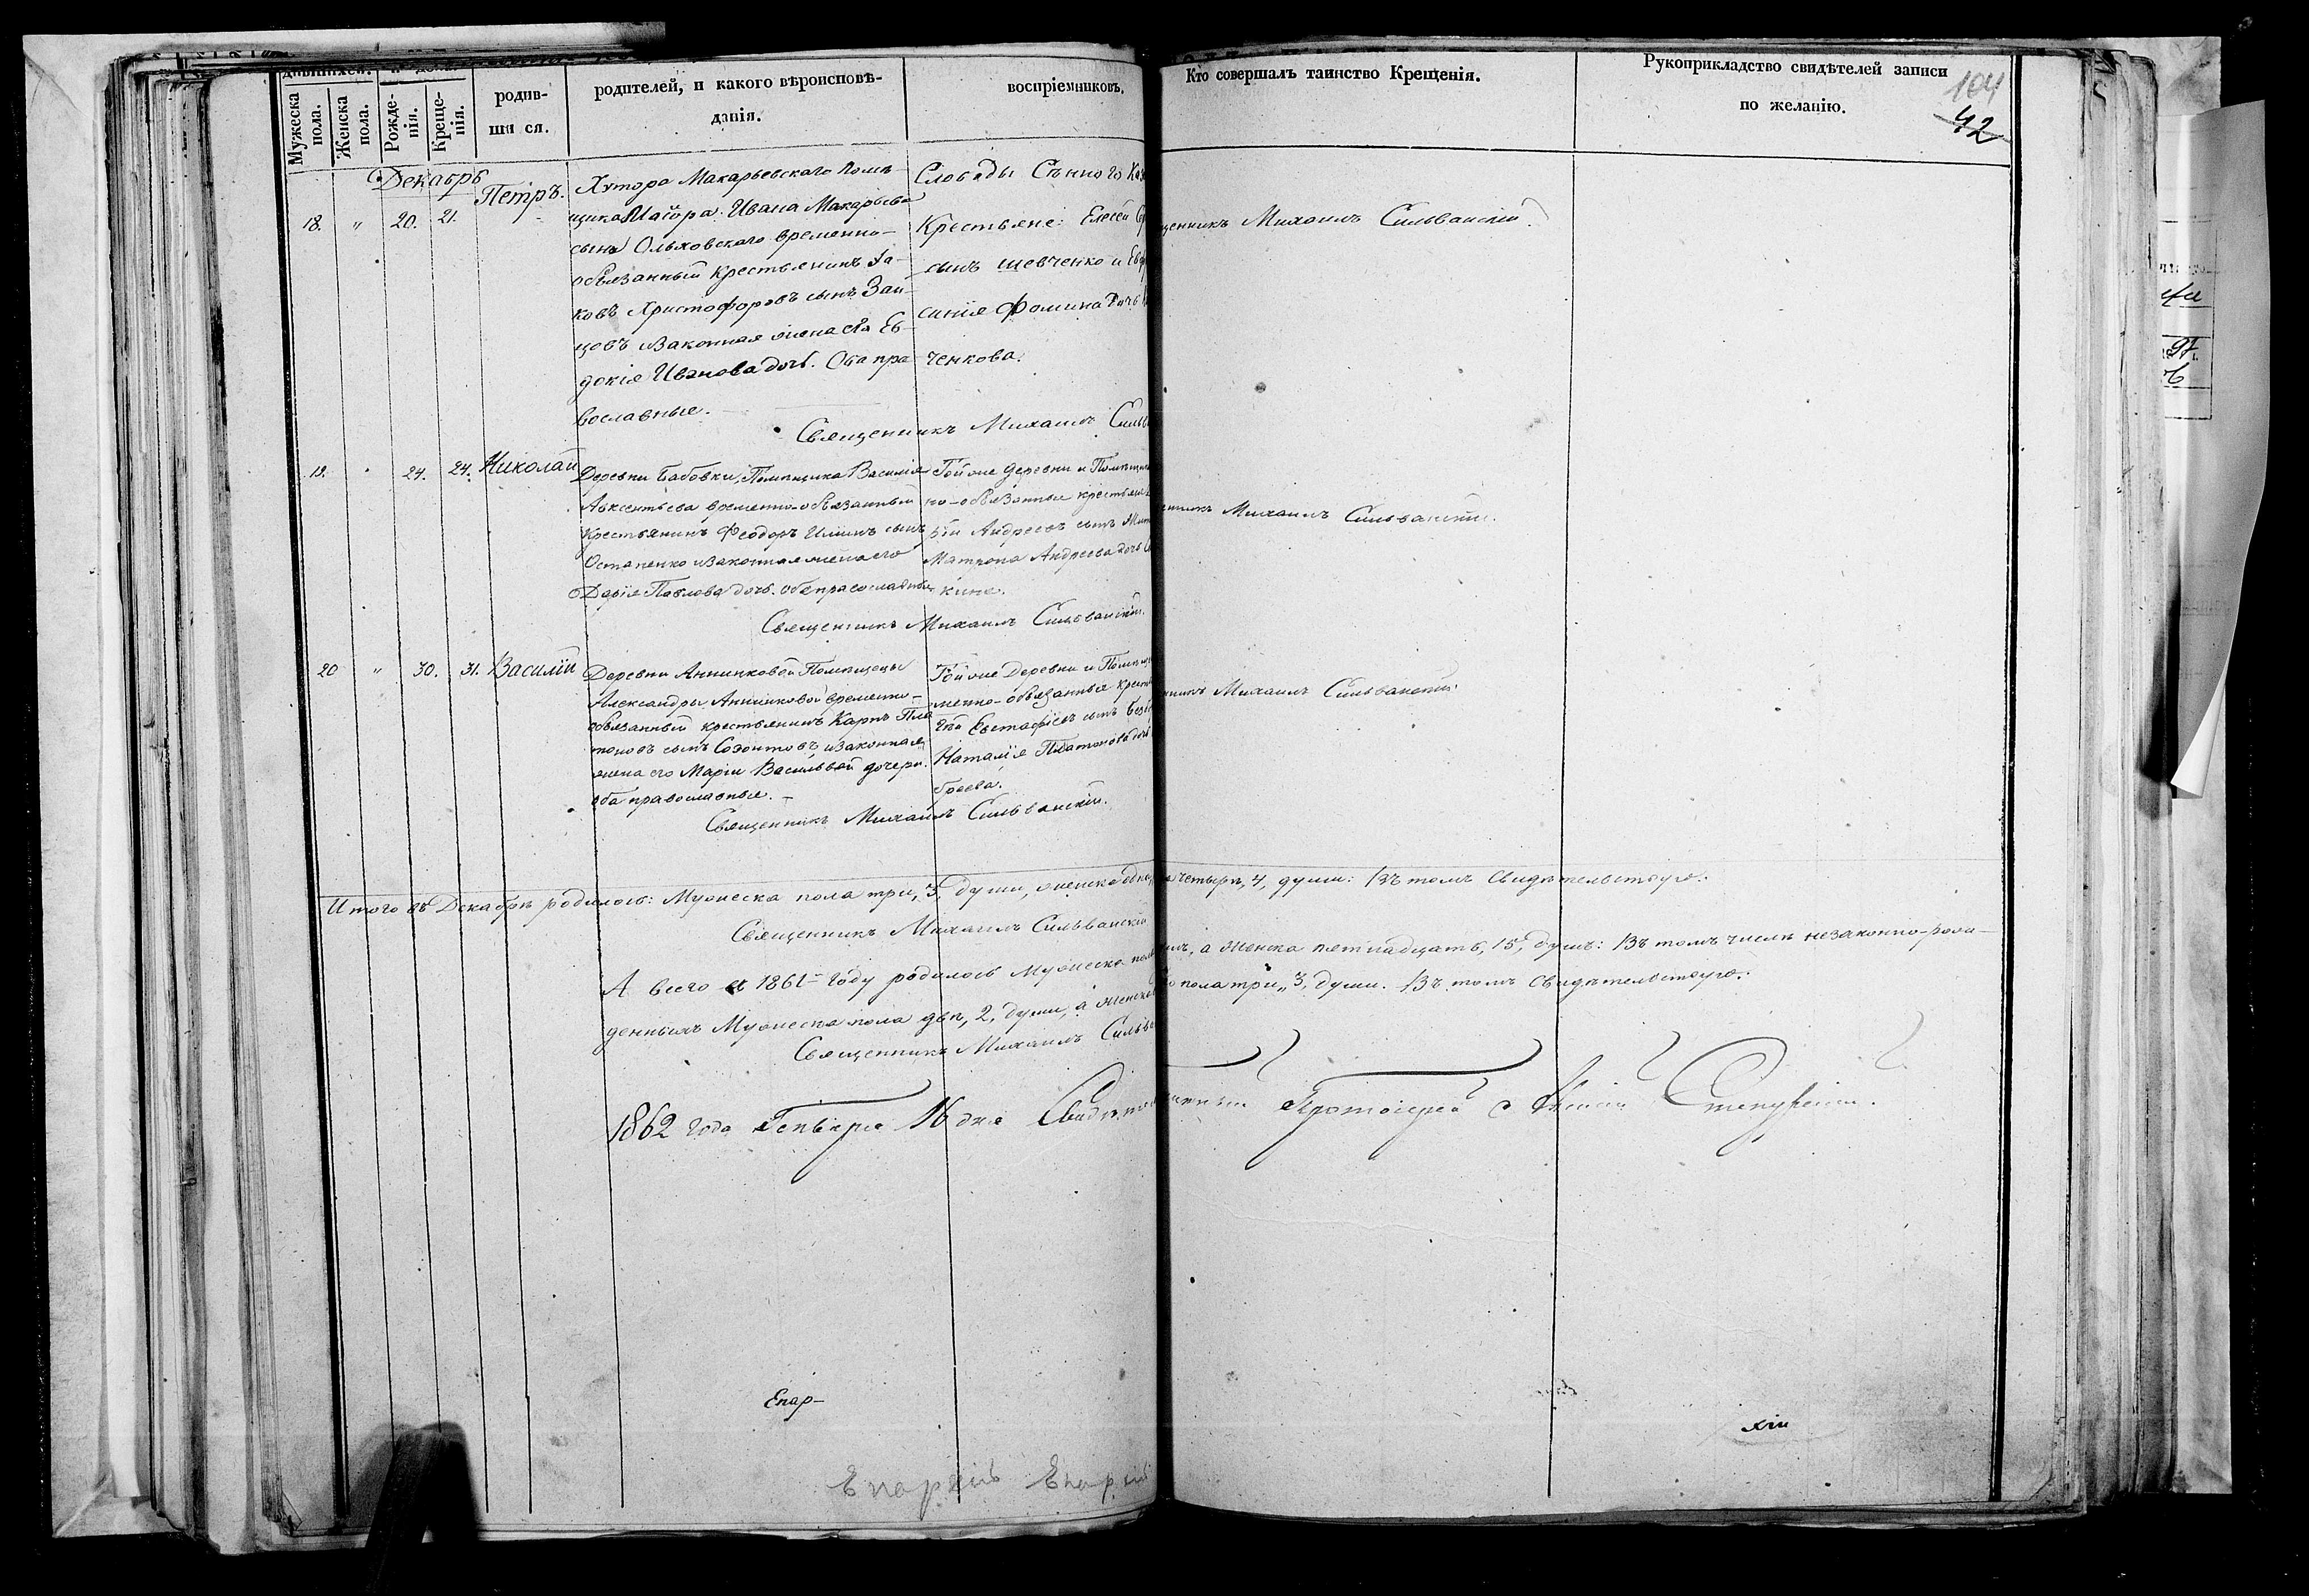 Мужеска пола.
Женска пола.
Рожденія.
Крещенія.
родившися.
родителей, и какого вѣроисповѣданія.
воспріемниковъ.
Кто совершалъ таинство Крещенія.
Рукоприкладство свидѣтелей записи
по желанію.
104
42
Декабрь
18. " 20. 21. Петръ.
Хутора Макарьевскаго Помѣ-
щика Маіора Ивана Макарьева
сына Ольховскаго временно-
обязанный крестьянинъ Іа-
ковъ Христофоровъ сынъ Заи-
цовъ и законная жена его Ев-
докія Иванова дочь. Оба пра-
вославные.
Слободы Сѣнного
Крестьяне: Елесей
сынъ Шевченко и
синія Фомина дочь
ченкова.
щенникъ Михаилъ Сильванскій
Священникъ Михаилъ
19. 24. 24. Николай
Деревни Бабовки, Помѣщика Василія
Авксентьева временно-обязанный
крестьянинъ Феодоръ Ильинъ сынъ
Остапенко и законная жена его
Дарія Павлова дочь. оба православные
Той же деревни и
но-обязанные
Андреевъ сынъ
Матрона Андреева дочь
кина.
Михаилъ Сильванскій.
Священникъ Михаилъ Сильванскій.
20 " 30. 31. Василій
Деревни Анненковой Помѣщицы
Александры Анненковой временно-
обязанный крестьянинъ Карпъ Пла-
тоновъ сынъ Созонтовъ, и законная
жена его Маріи Васильвой дочери.
оба православные.
Той же Деревни и
менно-обязанные
Евстафіевъ сынъ
Наталія Платонова дочь
Михаилъ Сильванскій.
Священникъ Михаилъ Сильванскій.
Итого въ Декабрѣ родилось: Мужеска пола три, 3, души, женска четыре, 4, души: Въ томъ Свидѣтельствую.
Священникъ Михаилъ Сильванскій
А всего въ 1861 году родилось Мужеска а женска пятнадцать, 15, душъ: Въ томъ числѣ незаконно-рож-
денныхъ Мужеска пола двѣ, 2, души, а женска пола три, 3, души. Въ томъ Свидѣтельствую.
Священникъ Михаилъ
1862 года Генваря 16 дня Протоіерей
Епар-
хіи
Епархіи